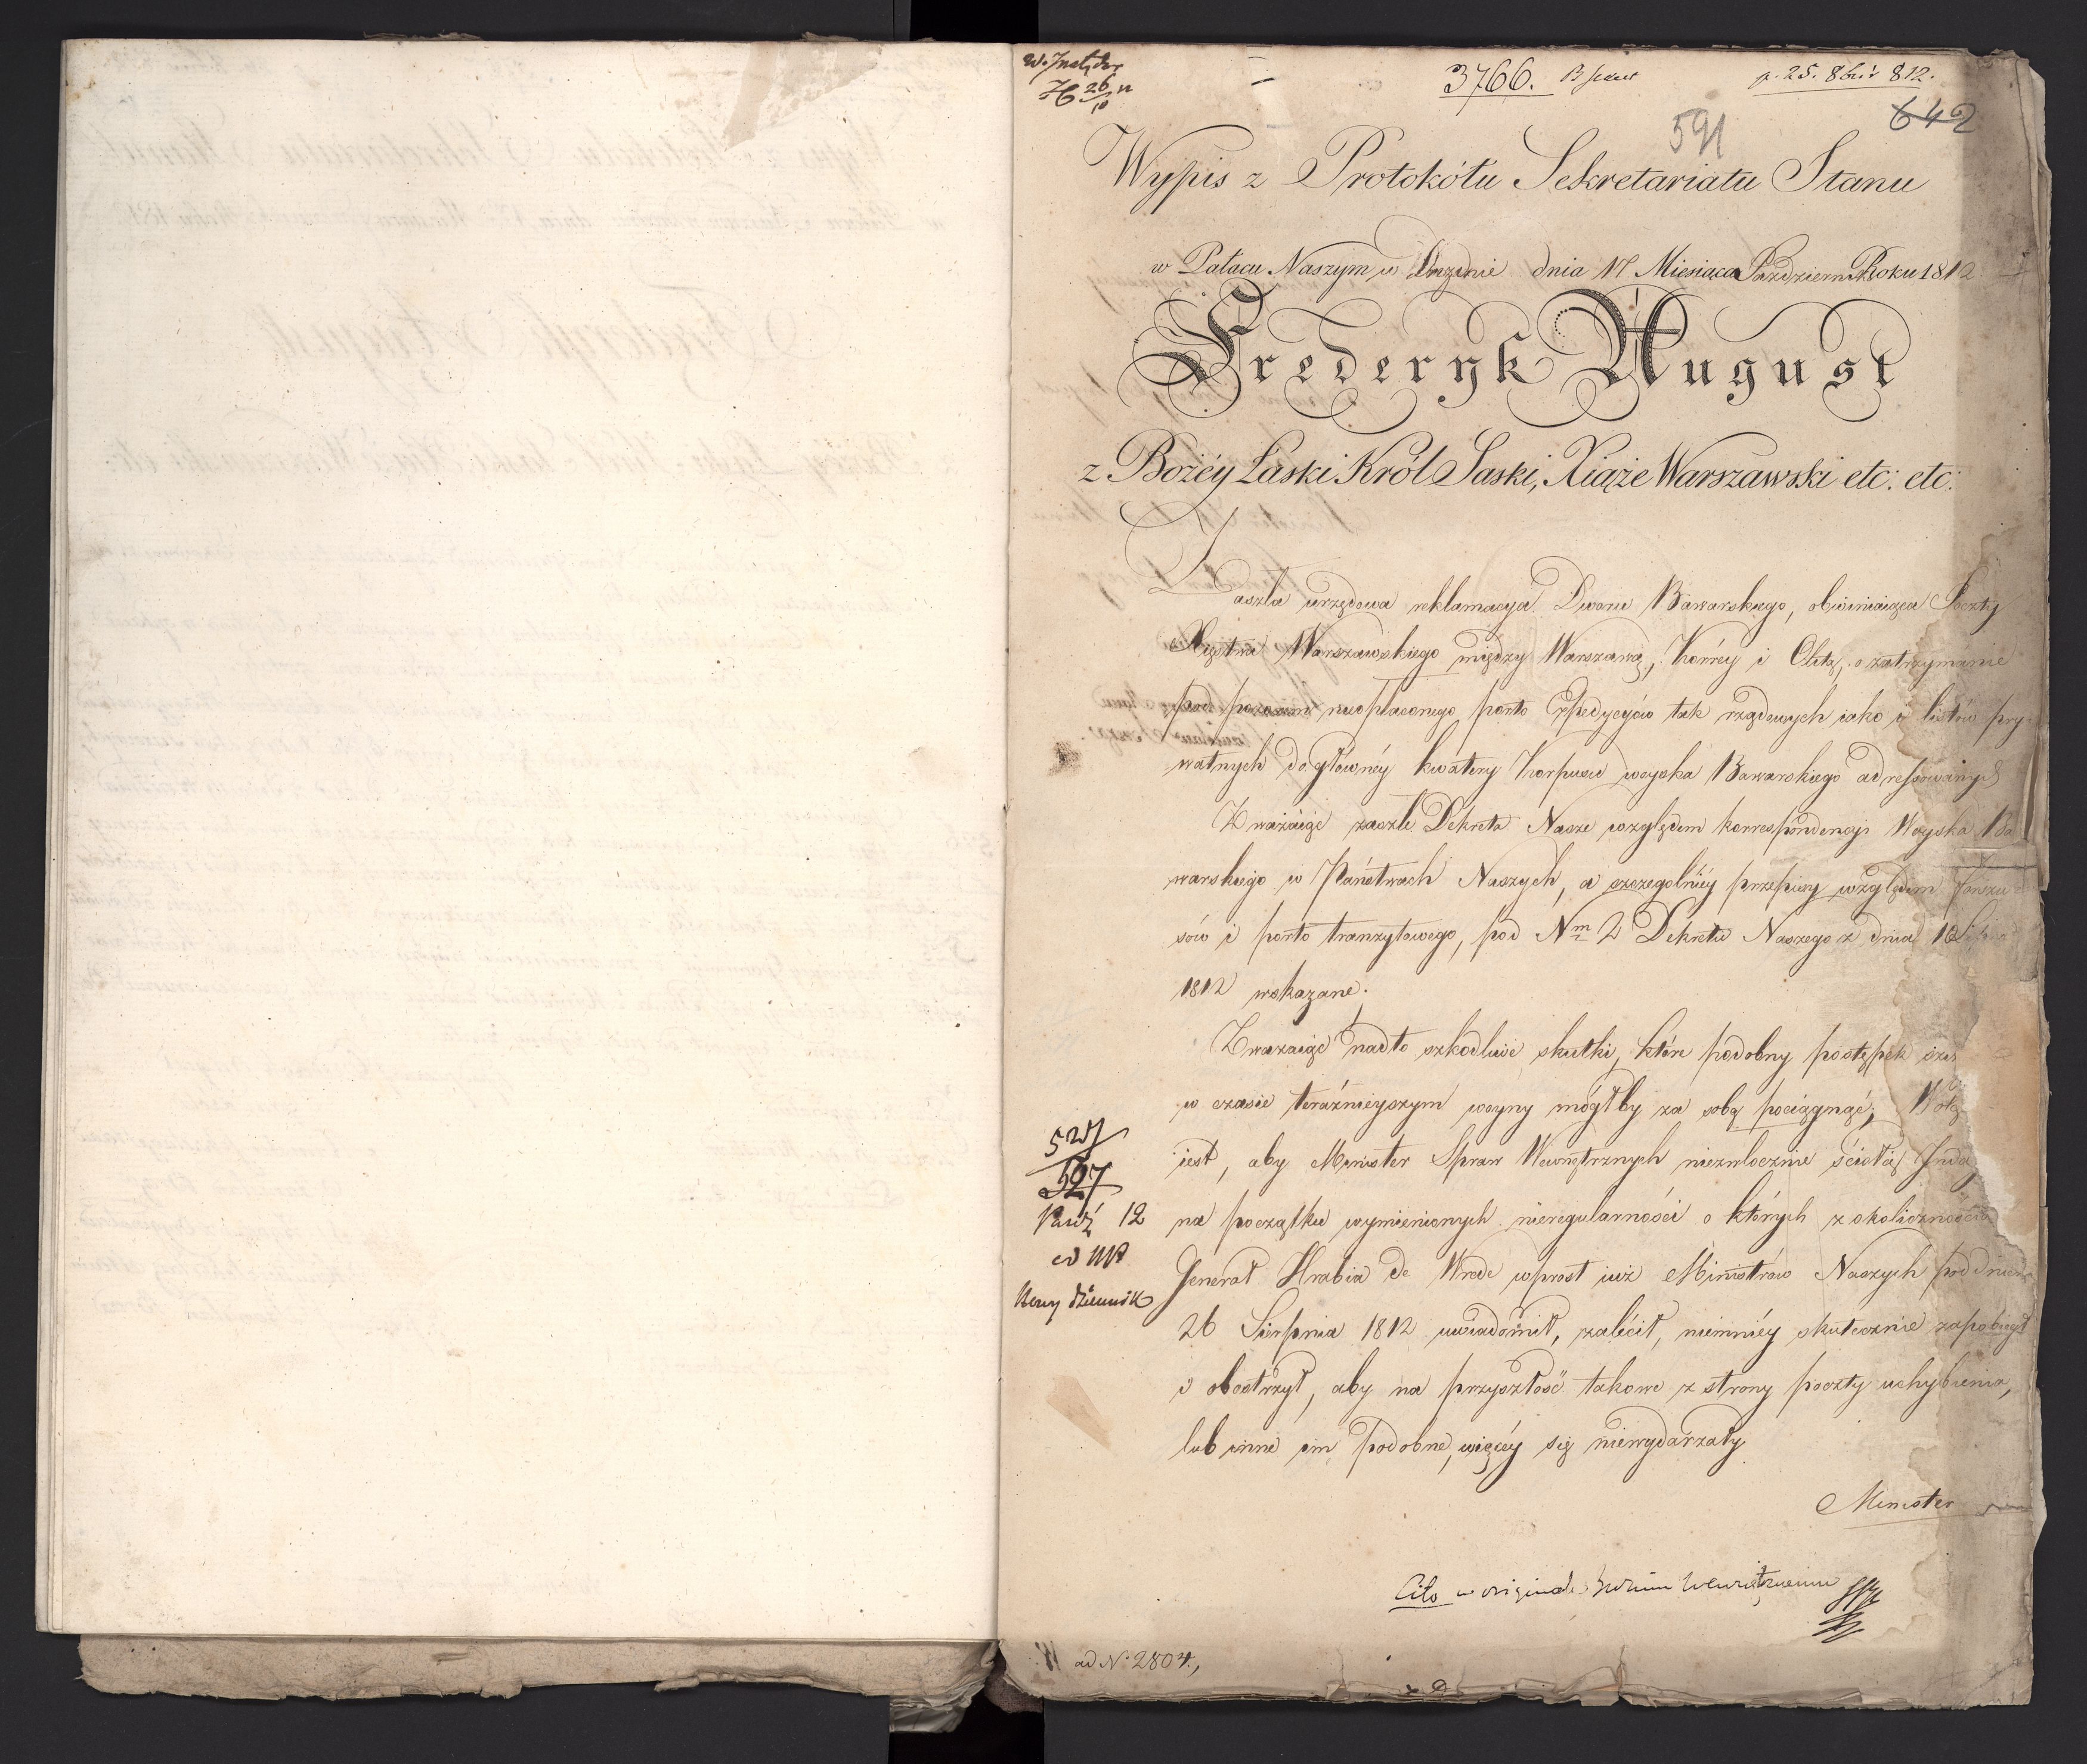 3766.
p. 25. 8br 812.
591
642
Wypis z Protokółu Sekretariatu Stanu
w Pałacu Naszym w Dreznie dnia 17 Miesiąca Październ. Roku 1812
Frederyk August
z Bożéy Łaski Król Saski, Xiąże Warszawski etc: etc:
Zaszła urzędowa reklamacya Dworu Bawarskiego, obwiniaiąca Poczty
Xięstwa Warszawskiego między Warszawą, i Olitą, o zatrzymanie
pod pozorem nieopłaconego porto Expedycyów tak rządowych iako i listów pry-
watnych do główney kwatery Korpusu woyska Bawarskiego adressowanych
Zważaiąc zaszłe Dekreta Nasze względem korrespondencyi Woyska Ba
warskiego w Państwach Naszych, a szczególniéy przepisy względem
sów i porto tranzytowego, pod Nm 2 Dekretu Naszego z dnia 16
1812 wskazane;
Zważaiąc nadto szkodliwe skutki, które podobny postępek
w czasie teraźnieyszym woyny mógłby za sobą pociągnąć; Wolą
iest, aby Minister Spraw Wewnętrznych niezwłocznie ścisłą Inda
na początku wymienionych nieregularności o których z okolicznościa
Jenerał Hrabia de Wrede wprost iuż Ministrów Naszych pod dniem
26 Sierpnia 1812 uwiadomił, zalécił, niemniéy skutecznie zapobiegł
i obostrzył, aby na przyszłość takowe z strony poczty uchybienia,
lub inne im podobne, więcéy się niewydarzały
527
527
Paźd 12
Nowy dziennik
Minister
Cito w originale
ad No 2804.,